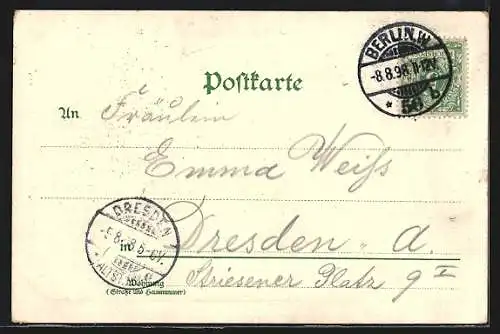 BERLIN.W.
-8.8.98.11-12V.
* 50 b.
Postkarte
An Fräulein
Emma Weiss
DRESDEN
ALTST.
in Dresden - A.
Wohnung
(Straße und Hausnummer)
Striesener Platz 9 II